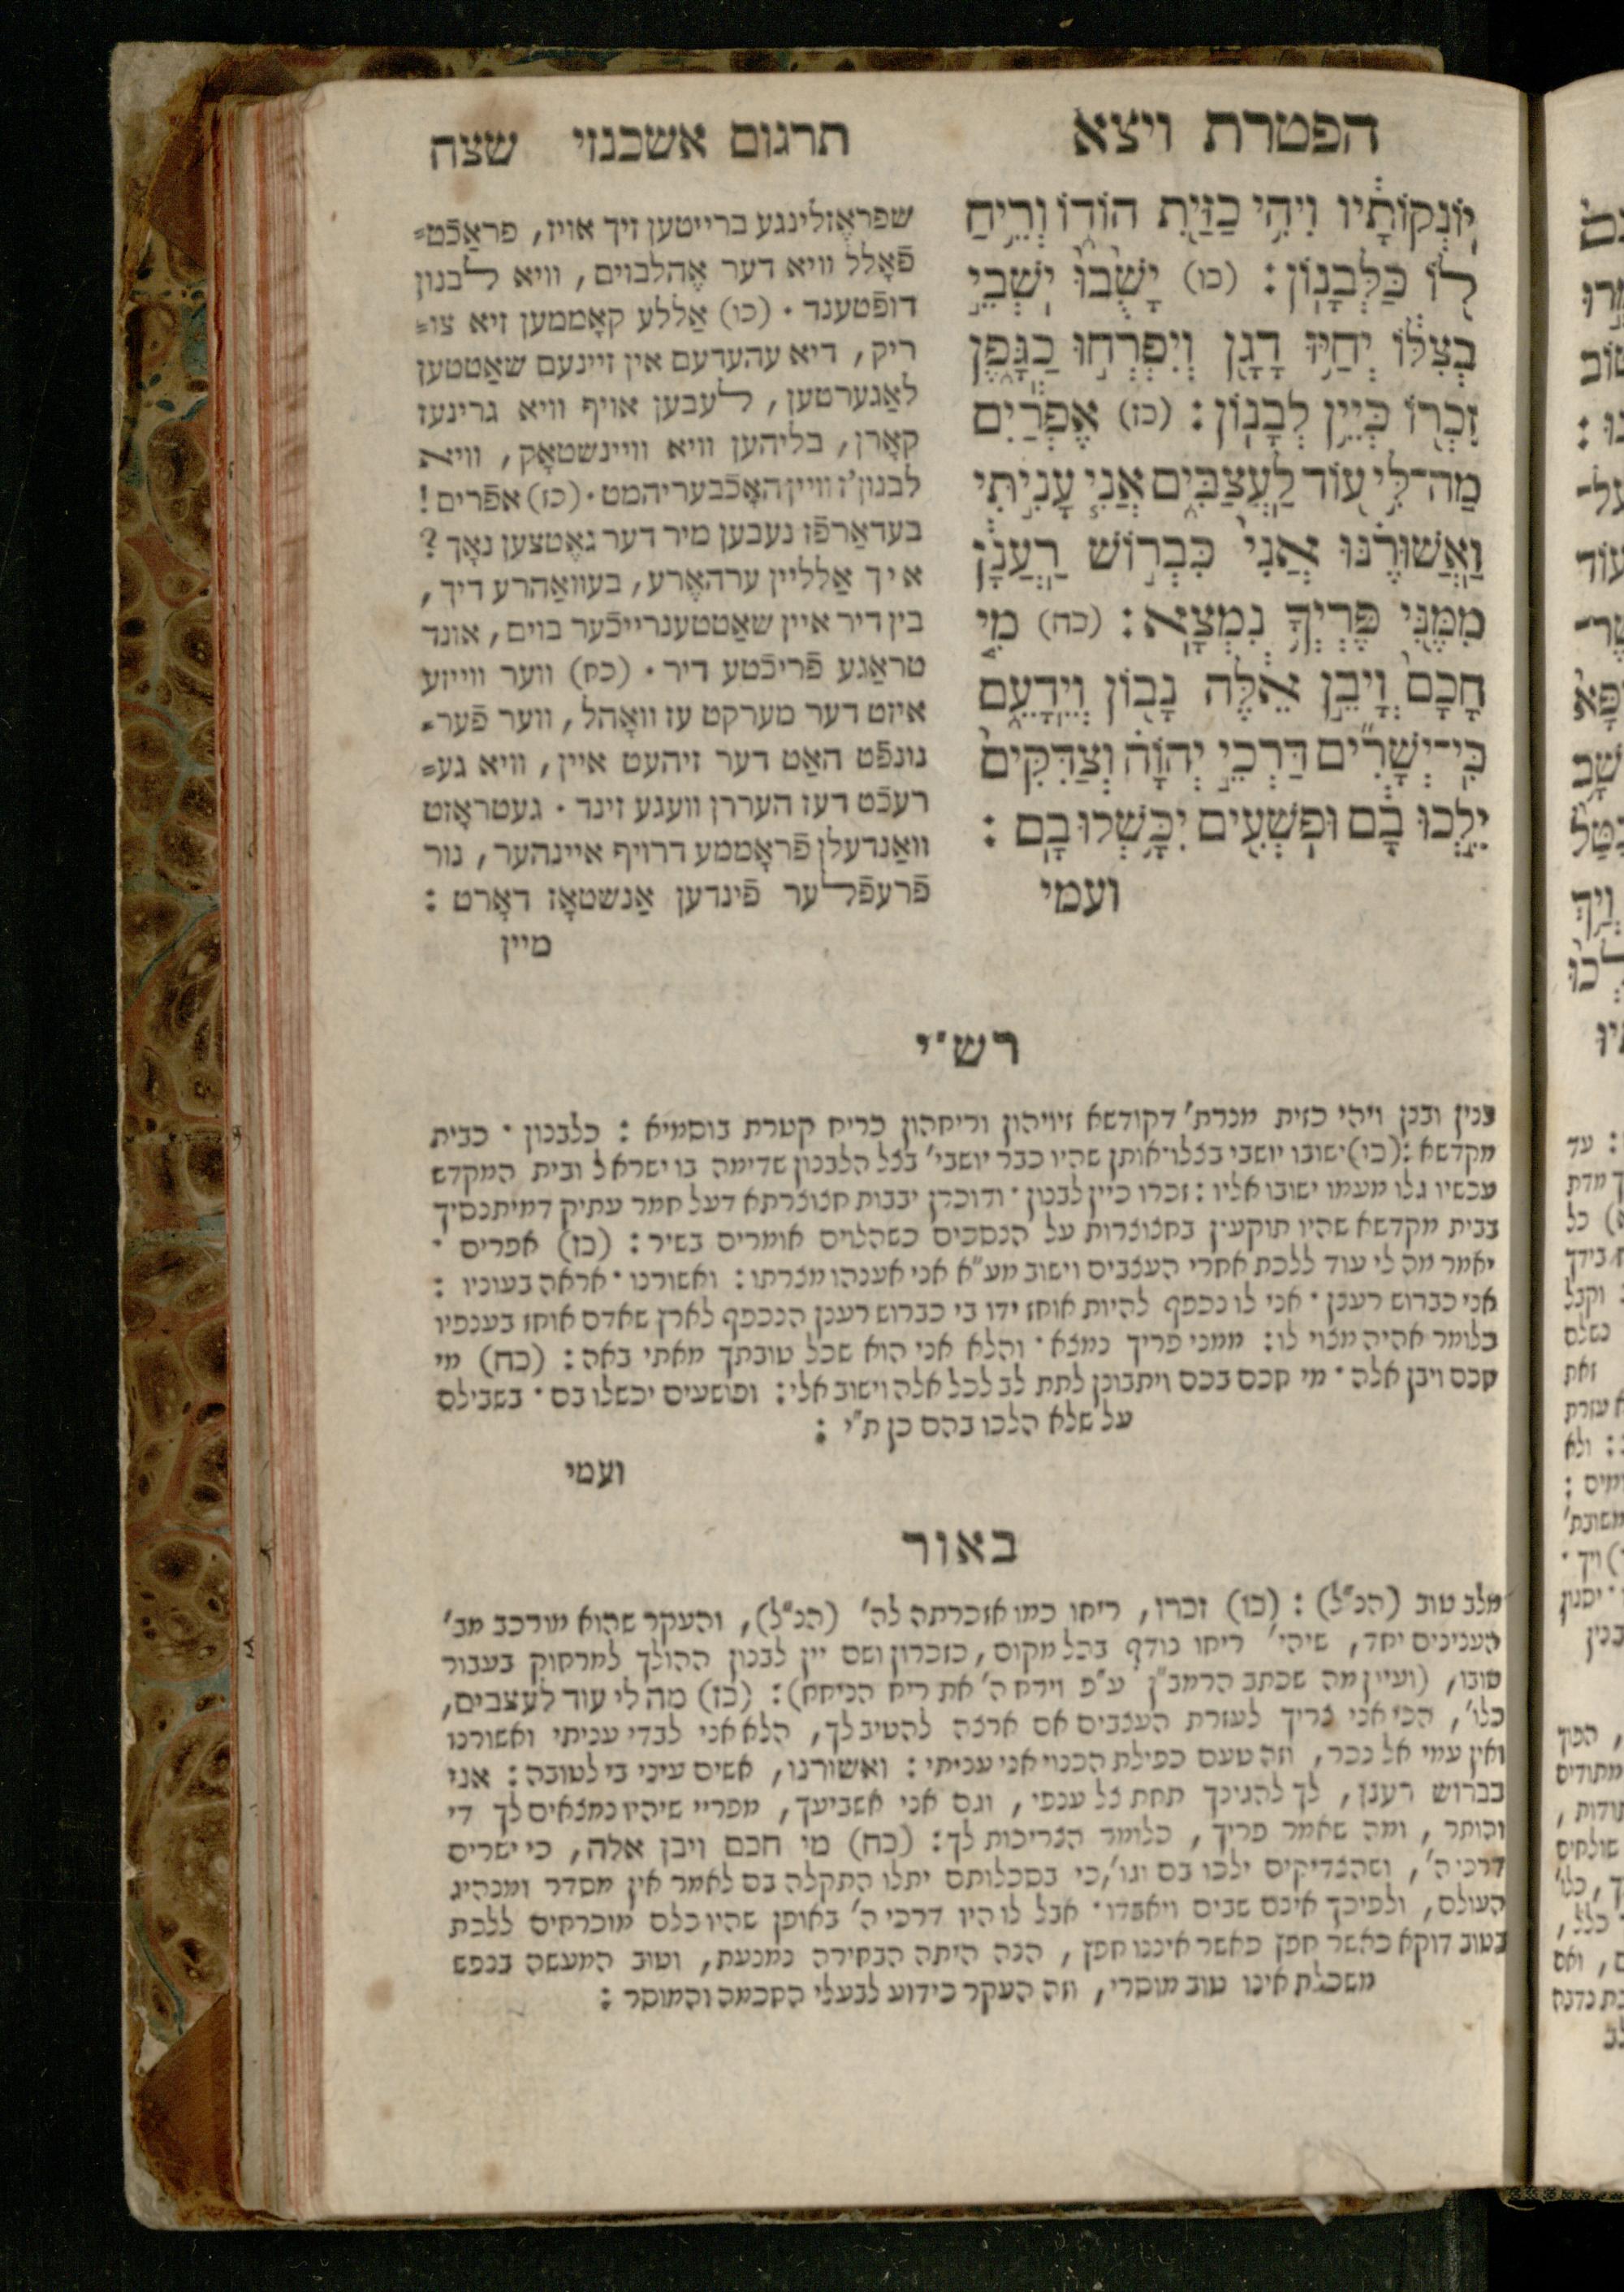 הפטרת ויצא
תרגום אשכנזי שצח
יֽוֹנְקוֹתָ֔יו וִיהִ֥י כַזַּ֖יִת הוֹד֑וֹ וְרֵ֥יחַֽ
ל֖וֹ כַּלְּבָנֽוֹן׃ (כו) יָשֻׁ֙בוּ֙ יֹשְׁבֵ֣י
בְצִלּ֔וֹ יְחַיּ֥וּ דָגָ֖ן וְיִפְרְח֣וּ כַגָּ֑פֶן
זִכְר֖וֹ כְּיֵ֥ין לְבָנֽוֹן׃ (כז) אֶפְרַ֕יִם
מַה־לִּ֥י ע֖וֹד לָֽעֲצַבִּ֑ים אֲנִ֧י עָנִ֣יתִי
וַאֲשׁוּרֶ֗נּוּ אֲנִי֙ כִּבְר֣וֹשׁ רַֽעֲנָ֔ן
מִמֶּ֖נִּי פֶּרְיְךָ֥ נִמְצָֽא׃ (כח) מִ֤י
חָכָם֙ וְיָבֵ֣ן אֵ֔לֶּה נָב֖וֹן וְיֵדָעֵ֑ם
כִּֽי־יְשָׁרִ֞ים דַּרְכֵ֣י יְהוָֹ֗ה וְצַדִּקִים֙
יֵ֣לְכוּ בָ֔ם וּפֹשְׁעִ֖ים יִכָּ֥שְׁלוּ בָֽם׃
ועמי
שפראָזלינגע ברייטען זיך אויז, פראַכֿט=
פֿאָלל וויא דער אֶהלבוים, וויא לבנון
דופֿטענד. (כו) אַללע קאָממען זיא צו=
ריק, דיא עהעדעם אין זיינעם שאַטטען
לאַגערטען, לעבען אויף וויא גרינעז
קאָרן, בליהען וויא וויינשטאָק, וויא
לבנון'ז וויין האָכֿבעריהמט. (כז) אפֿרים!
בעדאַרפֿז נעבען מיר דער גאֶטצען נאָך?
איך אַלליין ערהאֶרע, בעוואַהרע דיך,
בין דיר איין שאַטטענרייכֿער בוים, אונד
טראַגע פֿריכֿטע דיר. (כח) ווער ווייזע
איזט דער מערקט עז וואָהל, ווער פֿער=
נונפֿט האַט דער זיהעט איין, וויא גע=
רעכֿט דעז העררן וועגע זינד. געטראָזט
וואַנדעלן פֿראָממע דרויף איינהער, נור
פֿרעפֿלער פֿינדען אַנשטאָז דאָרט:
מיין
רש"י
בנין ובנן ויהי כזית מנרת' דקודשא זיויהון וריחהון כריח קטרת בוסמיא: כלבנון. כבית
מקדשא: (כו) ישובו יושבי בצלו. אותן שהיו כבר יושבי' בצל הלבנון שדימה בו ישראל ובית המקדש
עכשיו גלו מעמו ישובו אליו: זכרו כיין לבנון. ודוכרן יבבות חצוצרתא דעל חמר עתיק דמיתנסיך
בבית מקדשא שהיו תוקעין בחצוצרות על הנסכים כשהלוים אומרים בשיר: (כז) אפרים.
יאמר מה לי עוד ללכת אחרי העצבים וישוב מע"א אני אענהו מצרתו: ואשורנו. אראה בעוניו:
אני כברוש רענן. אני לו נכפף להיות אוחז ידו בי כברוש רענן הנכפף לארץ שאדם אוחז בענפיו
כלומר אהיה מצוי לו: ממני פריך נמצא. והלא אני הוא שכל טובתך מאתי באה: (כח) מי
חכם ויבן אלה. מי חכם בכם ויתבונן לתת לב לכל אלה וישוב אלי: ופושעים יכשלו בם. בשבילם
על שלא הלכו בהם כן ת"י:
ועמי
באור
מלב טוב (הנ"ל): (כו) זכרו, ריחו כמו אזכרתה לה' (הנ"ל), והעקר שהוא מורכב מב'
הענינים יחד, שיהי' ריחו נודף בכל מקום, כזכרון ושם יין לבנון ההולך למרחוק בעבור
טובו, (ועיין מה שכתב הרמב"ן ע"פ וירח ה' את ריח הניחח): (כז) מה לי עוד לעצבים,
כלו', הכי אני צריך לעזרת העצבים אם ארצה להטיב לך, הלא אני לבדי עניתי ואשורנו
ואין עמי אל נכר, וזה טעם כפילת הכנוי אני עניתי: ואשורנו, אשים עיני בי לטובה: אני
כברוש רענן, לך להגינך תחת צל ענפי, וגם אני אשביעך, מפריי שיהיו נמצאים לך די
והותר, ומה שאמר פריך, כלומר הצריכות לך: (כח) מי חכם ויבן אלה, כי ישרים
דרכי ה', ושהצדיקים ילכו בם וגו', כי בסכלותם יתלו התקלה בם לאמר אין מסדר ומנהיג
העולם, ולפיכך אינם שבים ויאבדו. אבל לו היו דרכי ה' באופן שהיו כלם מוכרחים ללכת
בטוב דוקא כאשר חפץ כאשר איננו חפץ, הנה היתה הבחירה נמנעת, וטוב המעשה בנפש
משכלת אינו טוב מוסרי, וזה העקר כידוע לבעלי החכמה והמוסר: